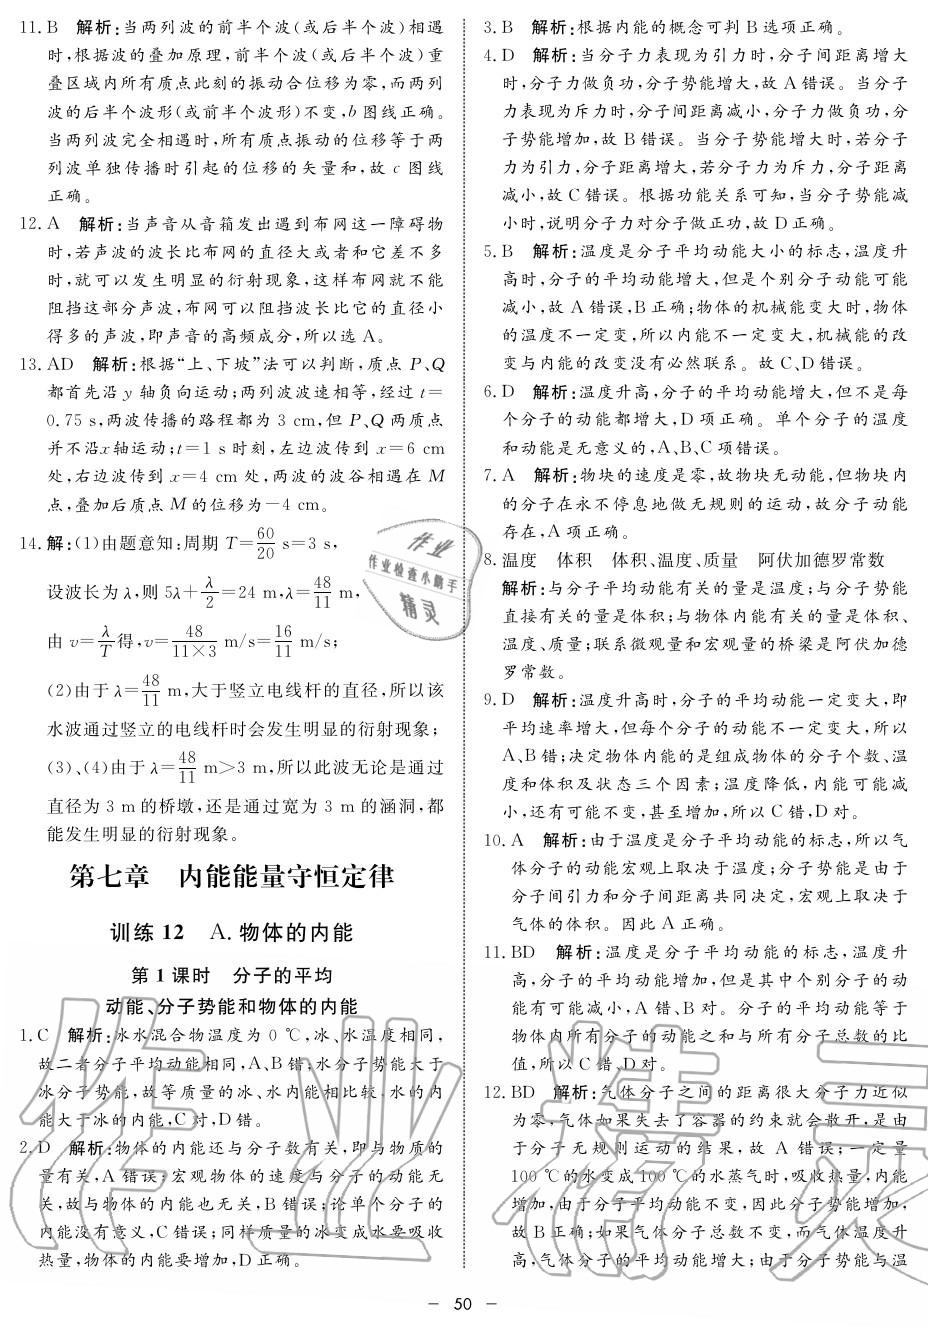 11. B 解析:当两列波的前半个波(或后半个波)相遇
时,根据波的叠加原理,前半个波(或后半个波)重
叠区域内所有质点此刻的振动合位移为零,而两列
波的后半个波形(或前半个波形)不变,b 图线正确。
当两列波完全相遇时,所有质点振动的位移等于两
列波单独传播时引起的位移的矢量和,故 c 图线
正确。
12. A 解析:当声音从音箱发出遇到布网这一障碍物
时,若声波的波长比布网的直径大或者和它差不多
时,就可以发生明显的衍射现象,这样布网就不能
阻挡这部分声波,布网可以阻挡波长比它的直径小
得多的声波,即声音的高频成分,所以选 A。
13. AD 解析:根据“上、下坡”法可以判断,质点 P、Q
都首先沿 y 轴负向运动;两列波波速相等,经过 t=
0.75 s,两波传播的路程都为 3 cm,但 P、Q 两质点
并不沿x轴运动;t=1 s 时刻,左边波传到 x=6 cm
处,右边波传到 x=4 cm 处,两波的波谷相遇在 M
点,叠加后质点 M 的位移为-4 cm。
14. 解:(1)由题意知:周期 T=60/20 s=3 s,
设波长为 λ,则 5λ+λ/2=24 m,λ=48/11 m,
由 v=λ/T得,v=48/(11×3) m/s=16/11 m/s;
(2)由于 λ=48/11 m,大于竖立电线杆的直径,所以该
水波通过竖立的电线杆时会发生明显的衍射现象;
(3)、(4)由于 λ=48/11 m>3 m,所以此波无论是通过
直径为 3 m 的桥墩,还是通过宽为 3 m 的涵洞,都
能发生明显的衍射现象。
第七章 内能能量守恒定律
训练 12 A. 物体的内能
第 1 课时 分子的平均
动能、分子势能和物体的内能
1. C 解析:冰水混合物温度为 0 ℃,冰、水温度相同,
故二者分子平均动能相同,A、B 错;水分子势能大于
冰分子势能,故等质量的冰、水内能相比较,水的内
能大于冰的内能,C 对,D 错。
2. D 解析:物体的内能还与分子数有关,即与物质的
量有关,A 错误;宏观物体的速度与分子的动能无
关,故与物体的内能也无关,B 错误;论单个分子的
内能没有意义,C 错误;同样质量的冰变成水要吸收
热量,物体的内能要增加,D 正确。
3. B 解析:根据内能的概念可判 B 选项正确。
4. D 解析:当分子力表现为引力时,分子间距离增大
时,分子力做负功,分子势能增大,故 A 错误。当分子
力表现为斥力时,分子间距离减小,分子力做负功,分
子势能增加,故 B 错误。当分子势能增大时,若分子
力为引力,分子距离增大,若分子力为斥力,分子距离
减小,故 C 错误。根据功能关系可知,当分子势能减
小时,说明分子力对分子做正功,故 D 正确。
5. B 解析:温度是分子平均动能大小的标志,温度升
高时,分子的平均动能增大,但是个别分子动能可能
减小,故 A 错误,B 正确;物体的机械能变大时,物体
的温度不一定变,所以内能不一定变大,机械能的改
变与内能的改变没有必然联系。故 C、D 错误。
6. D 解析:温度升高,分子的平均动能增大,但不是每
个分子的动能都增大,D 项正确。单个分子的温度
和动能是无意义的,A、B、C 项错误。
7. A 解析:物块的速度是零,故物块无动能,但物块内
的分子在永不停息地做无规则的运动,故分子动能
存在,A 项正确。
8. 温度 体积 体积、温度、质量 阿伏加德罗常数
解析:与分子平均动能有关的量是温度;与分子势能
直接有关的量是体积;与物体内能有关的量是体积、
温度、质量;联系微观量和宏观量的桥梁是阿伏加德
罗常数。
9. D 解析:温度升高时,分子的平均动能一定变大,即
平均速率增大,但每个分子的动能不一定变大,所以
A、B 错;决定物体内能的是组成物体的分子个数、温
度和体积及状态三个因素;温度降低,内能可能减
小,还有可能不变,甚至增加,所以 C 错,D 对。
10. A 解析:由于温度是分子平均动能的标志,所以气
体分子的动能宏观上取决于温度;分子势能是由于
分子间引力和分子间距离共同决定,宏观上取决于
气体的体积。因此 A 正确。
11. BD 解析:温度是分子平均动能的标志,温度升
高,分子的平均动能增加,但是其中个别分子的动
能有可能减小,A 错、B 对。分子的平均动能等于
物体内所有分子的动能之和与所有分子总数的比
值,所以 C 错、D 对。
12. BD 解析:气体分子之间的距离很大分子力近似
为零,气体如果失去了容器的约束就会散开,是由
于分子无规则运动的结果,故 A 错误;一定量
100 ℃的水变成 100 ℃的水蒸气时,吸收热量,内能
增加,由于分子平均动能不变,因此分子势能增加,
故 B 正确;如果气体分子总数不变,而气体温度升
高,气体分子的平均动能增大;由于分子势能与温
- 50 -
作业
作业检查小助手
精灵
作业精灵